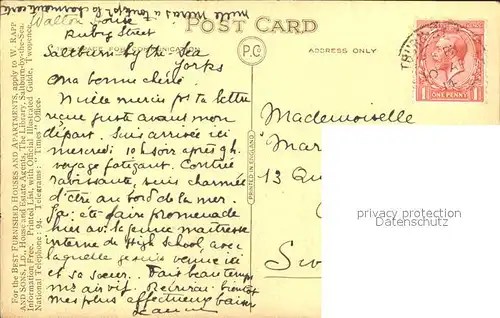 mille mercis
POST CARD
Walton House
Ruby Street
Saltburn by the Sea
Yorks
COMMUNICATION
P.C.
ADDRESS ONLY
ONE PENNY
1 1
Ma bonne chérie
Mille mercis pr ta lettre
reçue juste avant mon
départ. Suis arrivée ici
mercredi 10 h soir après 9 h.
voyage fatigant. Contrée
ravissante, suis charmée
d'être au bord de la mer.
Ja: été faire promenade
hier av. la jeune maîtresse
interne du High School avec
laquelle je suis venue ici
et sa soeur. Fais beau temps
ms air vif. Récrirai bientôt
Mes plus affectueux baisers
Jeanne
Mademoiselle
Mar
13 Qu
PRINTED IN ENGLAND
For the BEST FURNISHED HOUSES AND APARTMENTS, apply to W. RAPP
AND SONS, LD., House and Estate Agents, The Library, Saltburn-by-the-Sea.
Printed List, with Official Illustrated Guide, Twopence.
National Telephone: 94. Telegrams: "Times" Office.
privacy protection
www.ansichtskarten-center.de